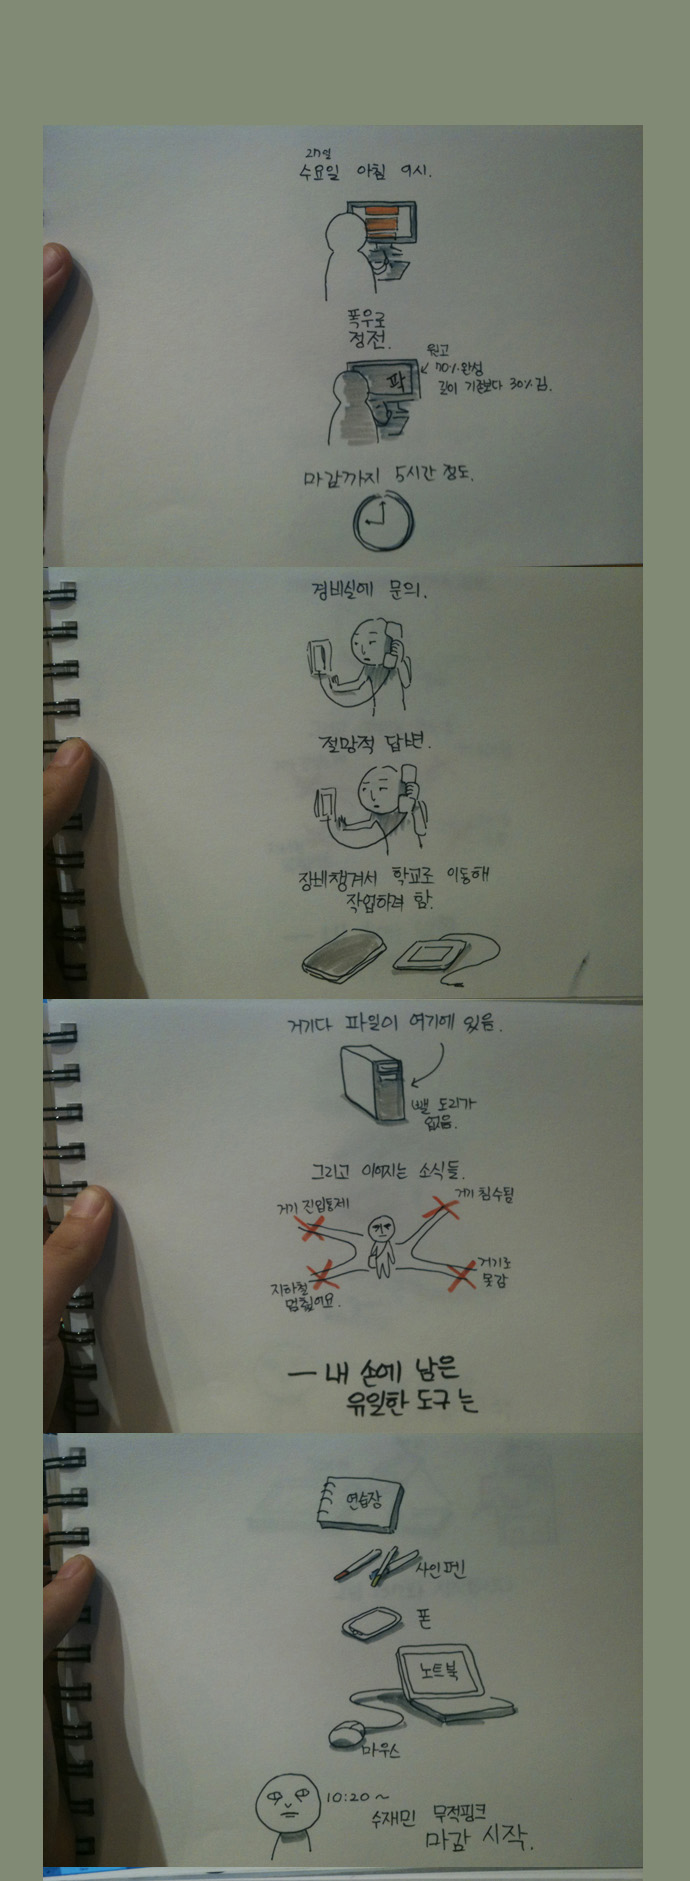 27일
수요일 아침 9시.
폭우로
정전.
팍
원고
70% 완성
길이 기존보다 30% 김.
마감까지 5시간 정도.
경비실에 문의.
절망적 답변.
장비챙겨서 학교로 이동해
작업하려 함.
거기다 파일이 여기에 있음.
뺄 도리가
없음.
그리고 이어지는 소식들.
거기 진입통제
거기 침수됨
지하철
멈췄어요.
거기로
못감
— 내 손에 남은
유일한 도구는
연습장
사인펜
폰
노트북
마우스
10:20 ~
수재민 무적핑크
마감 시작.